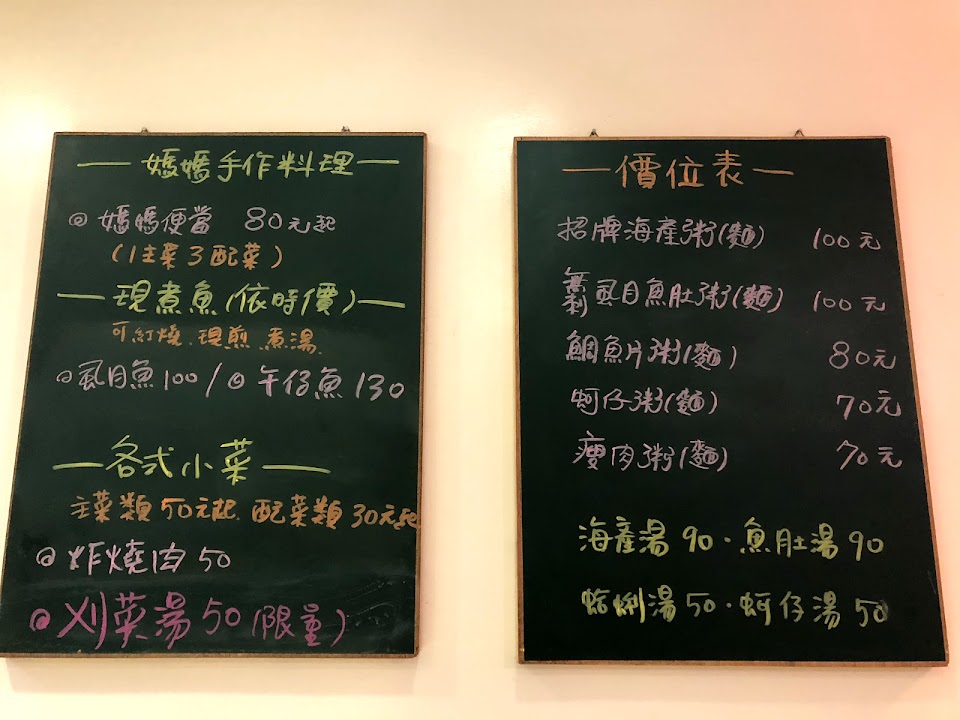 — 媽媽手作料理 —
@ 媽媽便當 80元起
(1主菜3配菜)
— 現煮魚(依時價) —
可紅燒.現煎.煮湯.
@虱目魚100/@午仔魚130
— 各式小菜 —
主菜類50元起.配菜類30元起
@炸燒肉50
@刈菜湯50(限量)
— 價位表 —
招牌海產粥(麵) 100元
無刺虱目魚肚粥(麵) 100元
鯛魚片粥(麵) 80元
蚵仔粥(麵) 70元
瘦肉粥(麵) 70元
海產湯90.魚肚湯90
蛤蜊湯50.蚵仔湯50